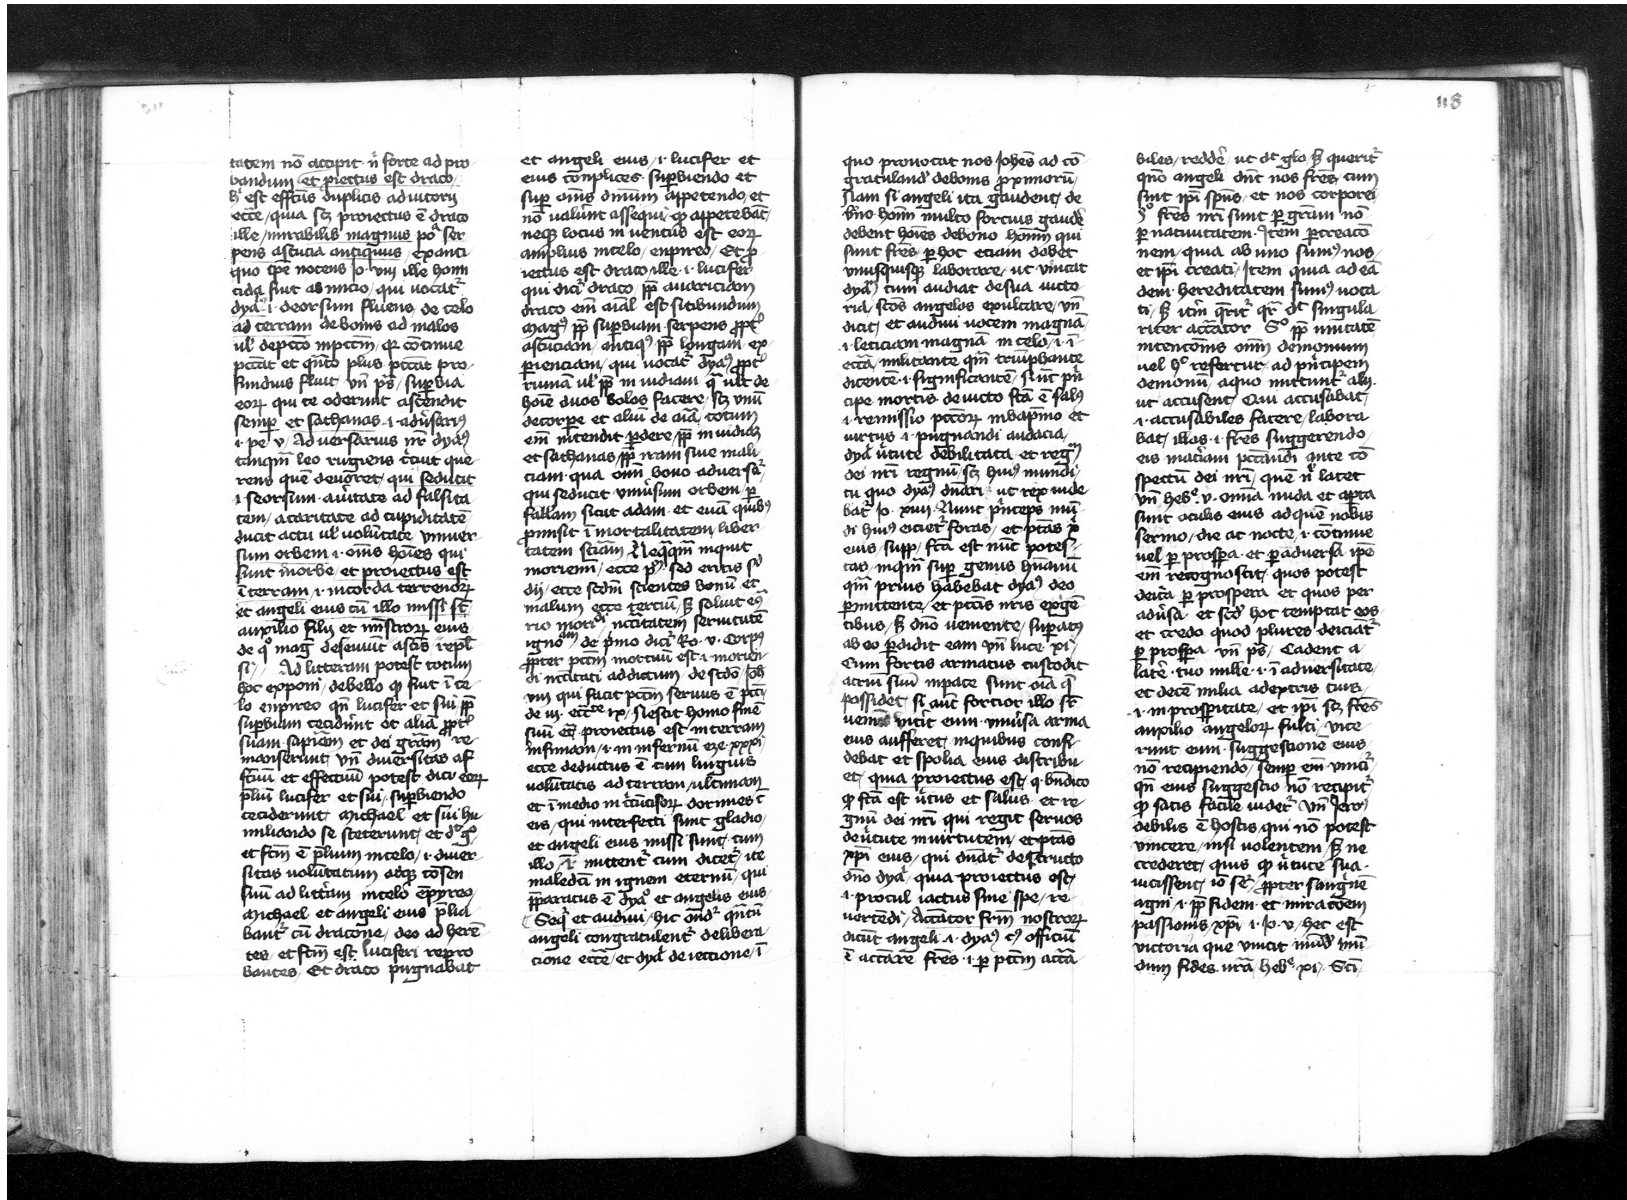 118
tatem nō accipit nͥ forte ad pro-
bandum / et ꝓiectus est draco /
hͥ est effctus duplicis adiutorij
eccē / quia scꝫ proiectus ē draco
ille / mirabilis magnus pꝰ ser
pens astucia antiquus / ex anti
quo tpe nocens Jo viii ille homi
cida fuit ab inicio / qui vocatr
dyaꝰ i deorsum fluens de celo
ad terram de bonis ad malos
ul de pctō in pctm / qr continue
pctat et qnto plus pctat pro-
fundius fluit vn ps / supbia
eorꝝ qui te oderunt ascendit
semp et sathanas i adusariꝰ
i pe v Aduersarius nr dyaꝰ
tanqm leo rugiens circuit que
rens quē deuoret / qui seducit
i seorsum a uitate ad falsita
tem / a caritate ad cupiditatē
ducit actu ul voluntate vniuer
sum orbem i oms hoīes qui
sunt in orbe / et proiectus est
ī terram / i in corda terrenorꝝ
et angeli eius cū illo missi st
auxilio filij et ministrorꝝ eius
de qͦ mag deseuiūt
si / Ad litteram potest totum
hoc exponi / de bello qd fuit ī ce-
lo enpireo qn lucifer et sui ꝓpt
supbiam ceciderūt et alia ꝓpt
suam sapiam et dei gram re-
manserunt / vn diuersitas af
fectuū et effectuū potest dici eorꝝ
pliū lucifer et sui supbiendo
ceciderunt / michael et sui hu
miliando se steterunt / et
et fcm ē plium in celo / i diuer-
sitas voluntatum atqꝫ consen
suū ad litteram in celo empyreo /
michael et angeli eius plia-
bantr cū dracone / deo ad herē
tes / et fcm est luciferi repro
bantes / Et draco pugnabat
et angeli eius / i lucifer et
eius complices supbiendo et
sup oms dnium appetendo / et
nō valuīnt assequi qd appetebāt /
neqꝫ locus inuentus est eorꝝ
amplius in celo / enpireo / Et ꝓ
iectus est draco ille i lucifer
qui dicit draco / ꝓpt auariciam
draco enī aīal est sitibundum
magꝰ ꝓpt supbiam serpens ꝓpt
astuciam / antiqꝰ ꝓpt longam ex-
perienciam / qui vocatr dyaꝰ ꝓpt
ruinā ul ꝓpt inuidiam / qͣ ult de
hoīe duos bolos facere / scꝫ vnū
de corpe et aliū de aīa / totum
enī intendit pdere / ꝓpt inuidiaꝫ
et sathanas / ꝓpt iram siue mali
ciam qua omī bono aduersatr
qui seducit vniūsum orbem / ꝑ
fallam sicut adam et euā quibꝰ
ꝓmisit īmortalitatem liber
tatem sciam Neqͣqͣm inquit
moriemī / ecce pꝰ sed eritis sͨ
dij / ecce scdm scientes bonū et
malum ecce terciū / sꝫ soluit
necitatem seruitutē
de pmo dicitr Ro v Corpꝰ
ꝓpter pctm mortuū est i morien-
di nccitati addictum / de scdo / Joh
viii qui facit pctm seruus ē pcti
de iij ecctes ix / Nescit homo finē
suū etc proiectus est in terram
infimam / i in infernū eze xxxi
ecce deductus ē cum lignis
voluptatis ad terram / ultimam
et ī medio incircūcisorꝝ dormies c
eis / qui interfecti sunt gladio /
et angeli eius missi sunt / cum
illo / i mittentr cum dicetr / ite
maledci in ignem eternū / qui
pparatus ē dyaꝰ et angelis eius /
Seqr et audiui / hic ondr qntū
angeli congraulentr delibera-
cione eccē / et dyal deieccione / ī
quo prouocat nos Johes ad cō
gratuland de bonis proximorū /
Nam si angeli ita gaudent / de
bno homī multo forcius gaudē
debent hoīes de bono homī qui
sunt fres / per hoc etiam debet
vnusquisqꝫ laborare / ut vincat
dyal cum audiat de sua victo
ria / scos angelos exultare / vn
dicit / et audiui vocem magnā /
i leticiam magnā in celo / i ī
eccā / militante qm triūphante
dicentē i significantē / sicut pn
cipe mortis deuicto fca ē salꝰ
i remissio pctorꝝ in bapmo et
virtus i pugnandi audacia /
dyal uirtute debilitata et regm
dei nri regnū / scꝫ huiꝰ mundi /
in quo dyaꝰ dnari ut rex vide
batr Jo xiii Nunc princeps mū
di huiꝰ eicietr foras / et ptas xp
eius / supp / fca est nūc potes-
tas / inqm sup genus humanū
qm prius habebat dyaꝰ deo
pmittente / et pctis nris exigē
tibus / sꝫ dno veniente / supatꝰ
ab eo pdidit eam vn luce xi /
Cum fortis armatus custodit
atriū suū in pace sunt oīa q
possidet / si aut forcior illo
ueniens uicerit eum uniūsa arma
eius aufferet / in quibus confi-
debat et spolia eius distribu
et / quia proiectus est / q bndico
qd fca est ūtus et salus et re-
gnū dei nri qui regit seruos
de uirtute in uirtutem / et ptas
xpi eius / qui dnatr destructo
dno dyal quia proiectus est /
i procul iactus sine spe / re
uertēdi / Accator frm nostrorꝝ
dicūt angeli i dyaꝰ cꝰ officiū
ē accare fres i ꝑ pctm accā
biles / reddē ut dt glo / sꝫ queritr
qno angeli dnt nos fres / cum
sint ipi spus / et nos corporei
fres nri sunt per gram non
per natiuitatem Item per creacio
nem / quia ab uno sumꝰ nos /
et ipi creati / Item quia ad eā
dem hereditatem sumꝰ uoca
ti / sꝫ itm qritr qr dt singula
riter accator Sꝰ ꝓpt unitatē
intencionis omīm demonium
uel hͦ refertur ad principem
demonū / a quo mittuntr alij
ut accusent / Qui accusabat /
i accusabiles facere / labora
bat / illos i fres suggerendo /
eis materiam pctandi ante cō
spectū dei nri / quē nl latet
vn heb v omia nuda et apta
sunt oculis eius ad quē nobis
sermo / die ac nocte / i continue
uel per prospa et per aduersa ipe
enī recognoscit / quos potest
deicia per prospera et quos per
adusa et scd hoc temptat eos
et credo quod plures deiciātr
per prospa vn ps / Cadent a
latē tuo mille i ī aduersitate /
et decē milia a dextris tuis /
i in prosperitate / et ipi scꝫ fres
auxilio angelorꝝ fulti / vice
runt eum suggestionē eius
nō recipiendo / semp enī vincitr
qn eius suggestio nō recipitr
qd satis facile uidetr vn Jeroꝰ
debilis ē hostis / qui nō potest
vincere / nisi volentem / sꝫ ne
crederet / quis qd uirtute sua
uicissent / iō ꝓpter sanguinē
agni i ꝓpt fidem et miracōem
passionis xpi i Jo v / hec est
victoria que vincit mūd mū
dum fides vra / heb xi / Scī